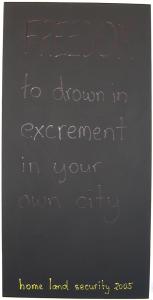 FREEDOM
to drown in
excrement
in your
own city
home land security 2005